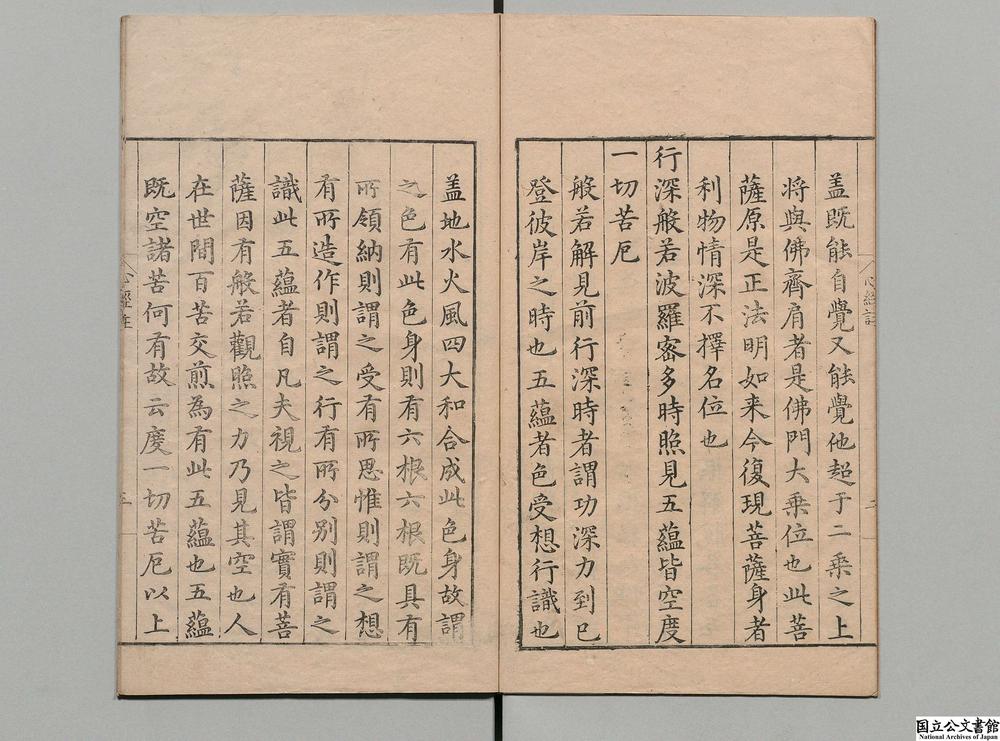 盖既能自覺又能覺他超于二乗之上
将與佛齊肩者是佛門大乗位也此菩
薩原是正法明如来今復現菩薩身者
利物情深不擇名位也
行深般若波羅密多時照見五蘊皆空度
一切苦厄
般若解見前行深時者謂功深力到已
登彼岸之時也五蘊者色受想行識也
盖地水火風四大和合成此色身故謂
之色有此色身則有六根六根既具有
所領納則謂之受有所思惟則謂之想
有所造作則謂之行有所分别則謂之
識此五蘊者自凡夫視之皆謂實有菩
薩因有般若觀照之力乃見其空也人
在世間百苦交煎為有此五蘊也五蘊
既空諸苦何有故云度一切苦厄以上
心經註
心經註
国立公文書館
National Archives of Japan